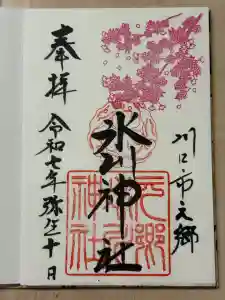 川口市元郷
氷川神社
奉拝
令和七年弥生十日
元郷
氷川
神社